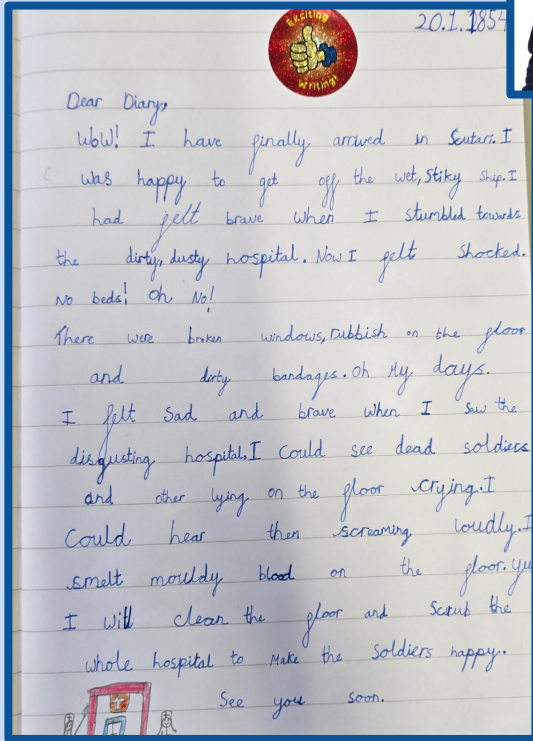 Exciting
Writing!
20.1.1854
Dear Diary,
WoW! I have finally arrived in Scutari. I
was happy to get off the wet, Stiky Ship. I
had felt brave when I stumbled towards
the dirty, dusty hospital. Now I felt Shocked.
No beds! Oh No!
There were broken windows, rubbish on the floor
and dirty bandages. Oh My days.
I felt Sad and brave when I Saw the
disgusting hospital. I Could See dead Soldiers
and other lying on the floor crying. I
Could hear then screaming loudly. I
smelt mouldy blood on the floor.
I Will clean the floor and Scrub the
whole hospital to Make the Soldiers happy.
See you soon.